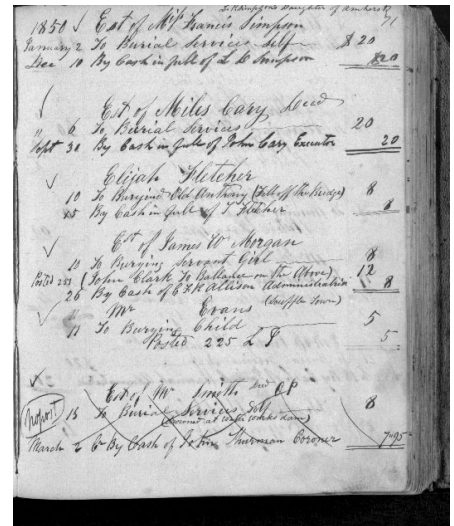 L Simpsons Daughter of Amherst
71
1850 Est of Miss Francis Simpson
January 2 To Burial Services Self $20
Dec 10 By Cash in full of L D Simpson $20
Est of Miles Cary Decd
" 6 To Burial Services 20
Sept 30 By Cash in full of John Cary Executor 20
Elijah Fletcher
10 To Burying Old Anthony (Fell off the Bridge) 8
15 By Cash in full of T Fletcher 8
Est of James W Morgan
10 To Burying Servant Girl 8
Posted 251 (John Clark To Ballance on the Above) 12
26 By Cash of E F K Allison Administratrix 8
(Scuffle Town)
Mr Evans
11 To Burying Child 5
Posted 225 L P 5
Est of Mr Smith Decd OP
(No post) 13 To Burial Services Self 8
(Drowned at water works dam)
March 2 By Cash of John Thurman Coroner 7.95